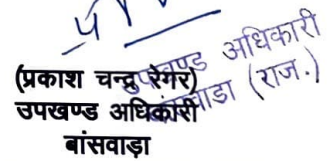 (प्रकाश चन्द्र रेगर)
उपखण्ड अधिकारी
बांसवाड़ा
उपखण्ड अधिकारी
बांसवाडा (राज.)